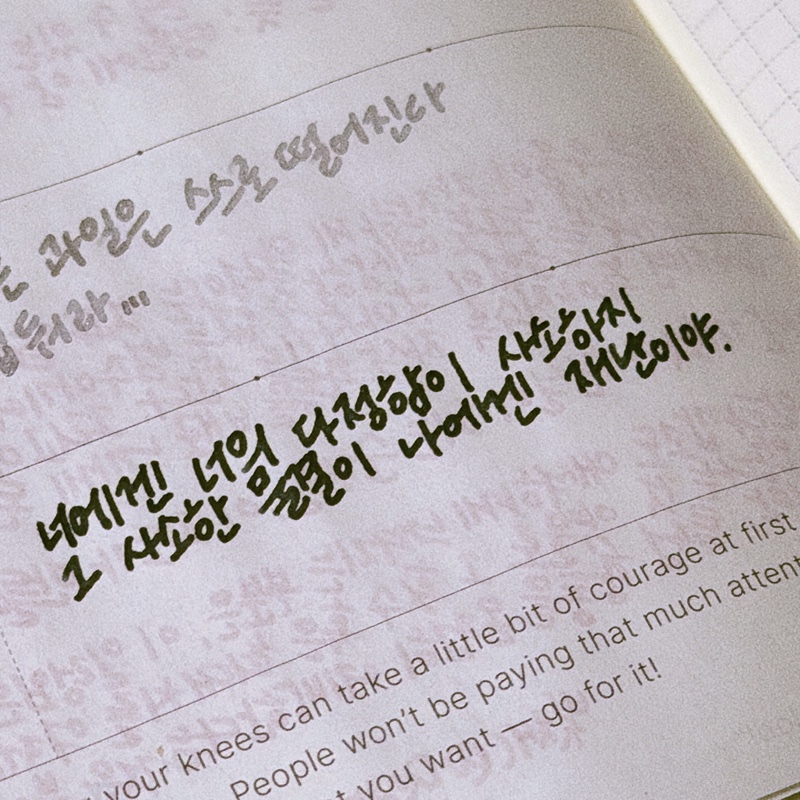 과일은 스스로 떨어진다
둬라...
너에겐 너의 다정함이 사소하지
그 사소한 물결이 나에겐 재난이야.
your knees can take a little bit of courage at first
People won't be paying that much attent
you want — go for it!